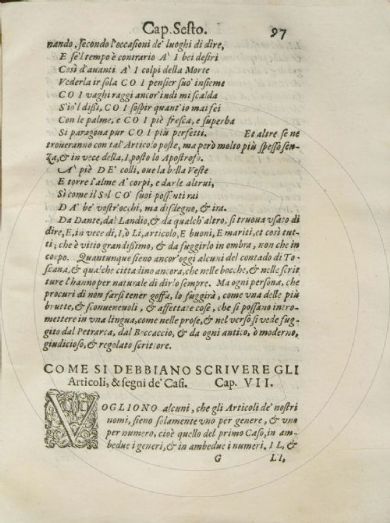 Cap. Sesto. 97
nando, secondo l'occasioni de' luoghi di dire,
E se'l tempo è contrario A' I bei desiri
Così d'auanti A' I colpi della Morte
Vederla ir sola CO I pensier suo' insieme
CO I vaghi raggi ancor' indi mi scalda
S'io'l dissi, CO I sospir quant' io mai fei
Con le palme, e CO I piè fresca, e superba
Si paragona pur CO I più perfetti. Et altre se ne
troueranno con tal' Articolo poste, ma però molto più spesso sen-
za, & in vece della, I posto lo Apostrofo.
A' piè DE' colli, oue la bella Veste
E torre l'alme A' corpi, e darle altrui,
Sì come il Sol CO' suoi possenti rai
DA' be' vostr' occhi, ma disdegno, & ira.
Da Dante, dal Landio, & da qualch' altro, si truoua vsato di
dire, E, in vece di, I, è Li, articolo, E buoni, E mariti, et così tut-
ti; che è vitio grandissimo, & da fuggirlo in ombra, non che in
corpo. Quantunque sieno ancor' oggi alcuni del contado di To-
scana, & qualche cittadino ancora, che nelle bocche, & nelle scrit-
ture l'hanno per naturale di dirlo sempre. Ma ogni persona, che
procuri di non farsi tener goffa, lo fuggirà, come vna delle più
brutte, & sconueneuoli, & affettate cose, che si possano intro-
mettere in vna lingua, come nelle prose, & nel verso si vede fug-
gito dal Petrarca, dal Boccaccio, & da ogni antico, è moderno,
giudicioso, & regolato scrittore.
COME SI DEBBIANO SCRIVERE GLI
Articoli, & segni de' Casi. Cap. VII.
VOGLIONO alcuni, che gli Articoli de' nostri
nomi, sieno solamente vno per genere, & vno
per numero, cioè quello del primo Caso, in am-
bedue i generi, & in ambedue i numeri, IL, &
G LI,